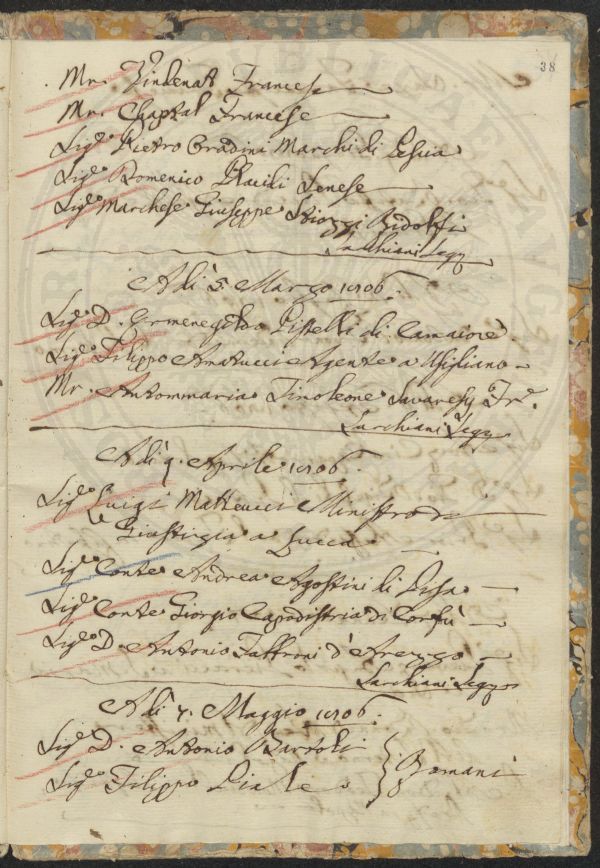 38
Mr. Vindenat Francese
Mr. Chaptal Francese
Sig.e Pietro Orradini Marchi di Pescia
Sig.e Domenico Placidi Senese
Sig.e Marchese Giuseppe Ridolfi
Sarchiani Seg.
Adì 5 Marzo 1806.
Sig.e D. Ermenegildo Pistelli di Camaiore.
Sig.e Filippo Amatucci Agente a Usigliano
Mr. Antommaria Timoleone Savaresy Fr.
Sarchiani Seg.
Adì 9. Aprile 1806.
Sig.e Luigi Matteucci Ministro di
Giustizia a Lucca
Sig.e Conte Andrea Agostini di Pisa
Sig.e Conte Giorgio Capodistria di Corfù
Sig.e D. Antonio Fabbroni d'Arezzo
Sarchiani Seg.
Adì 7. Maggio 1806.
Sig.e D. Antonio Bartoli
Sig.e Filippo Piale
Romani